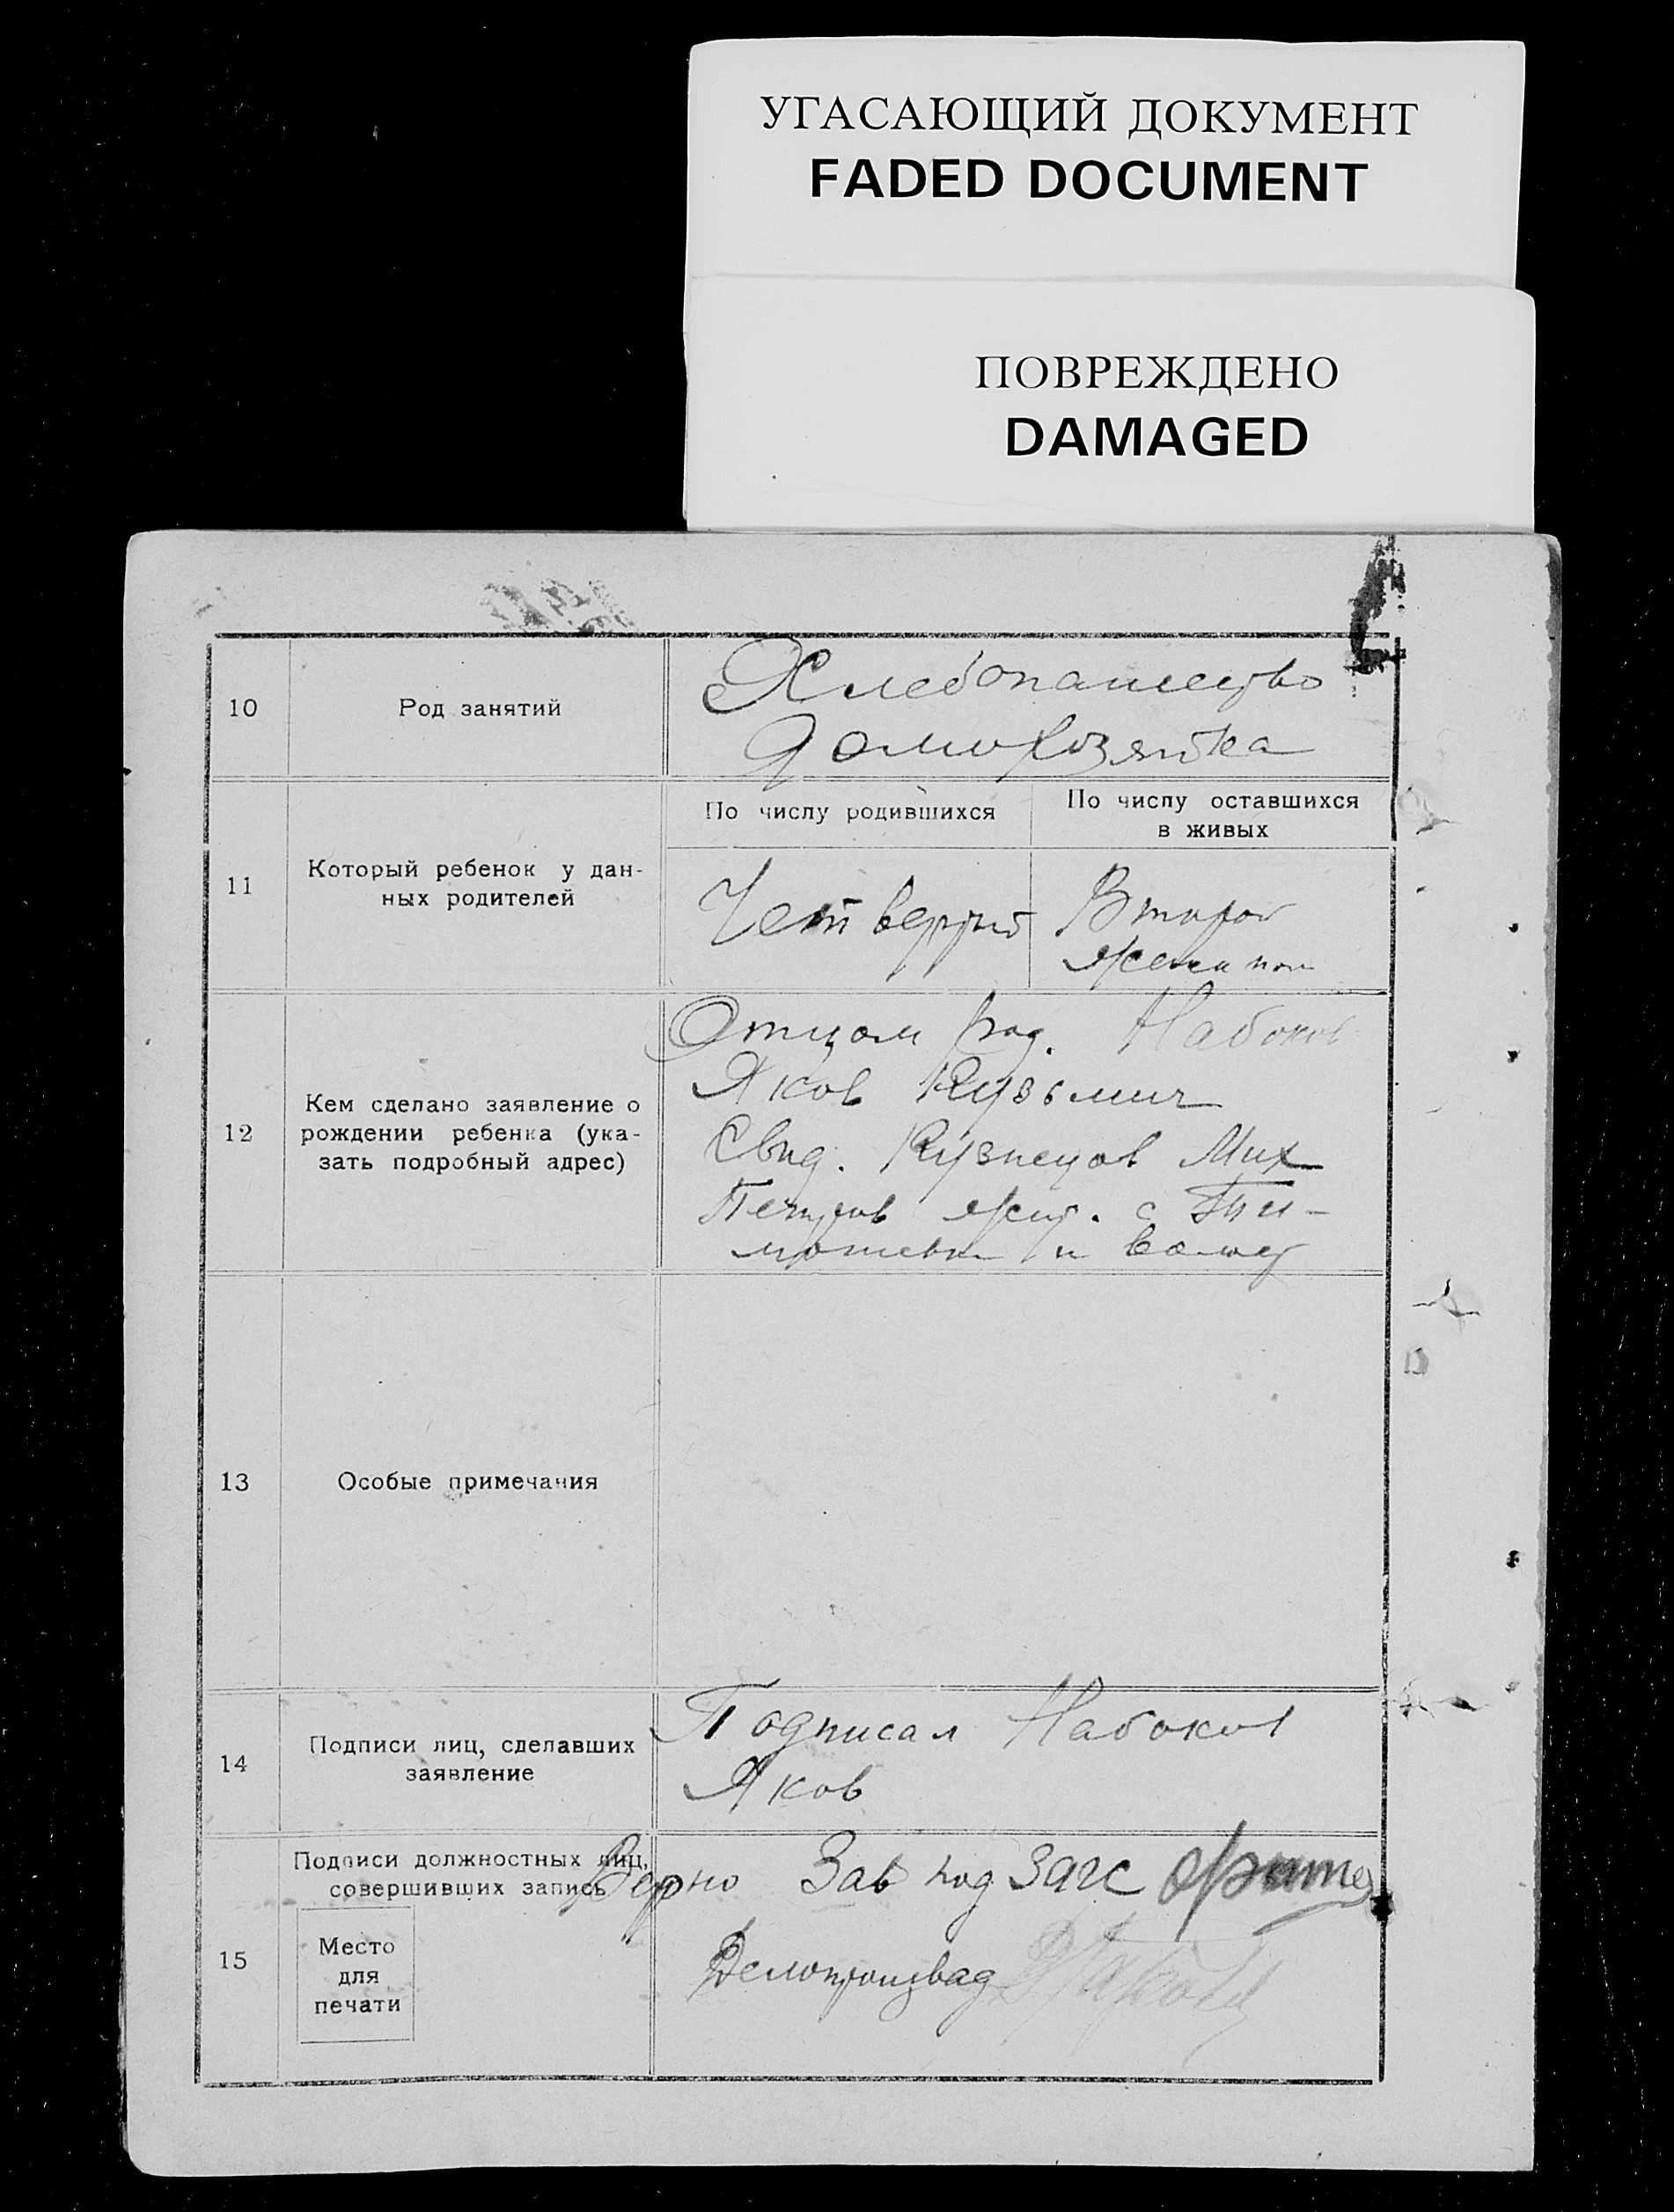 УГАСАЮЩИЙ ДОКУМЕНТ
FADED DOCUMENT
ПОВРЕЖДЕНО
DAMAGED
10
Род занятий
Хлебопашество
Домохозяйка
11
Который ребенок у дан-
ных родителей
По числу родившихся
По числу оставшихся
в живых
Четвертый
Второй
12
Кем сделано заявление о
рождении ребенка (ука-
зать подробный адрес)
Отцом род. Набоков
Яков Кузьмич
Свид. Кузнецов Мих
жит. с
13
Особые примечания
14
Подписи лиц, сделавших
заявление
Подписал Набоков
Яков
15
Подписи должностных лиц,
совершивших запись
Место
для
печати
Верно Зав под Загс
Делопроизвод